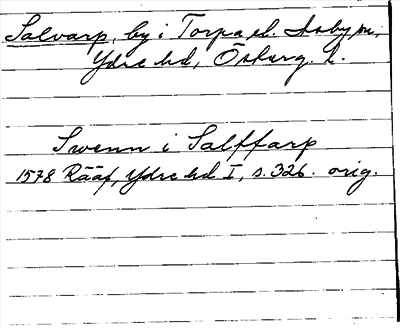 Salvarp, by i Torpa el. Asby sn,
Ydre hd, Österg. l.
Swenn i Salffarp
1578 Rääf, Ydre hd I, s. 326. orig.